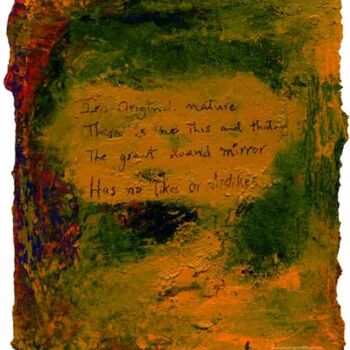 In Original nature
There is no this and that
The great round mirror
Has no likes or dislikes